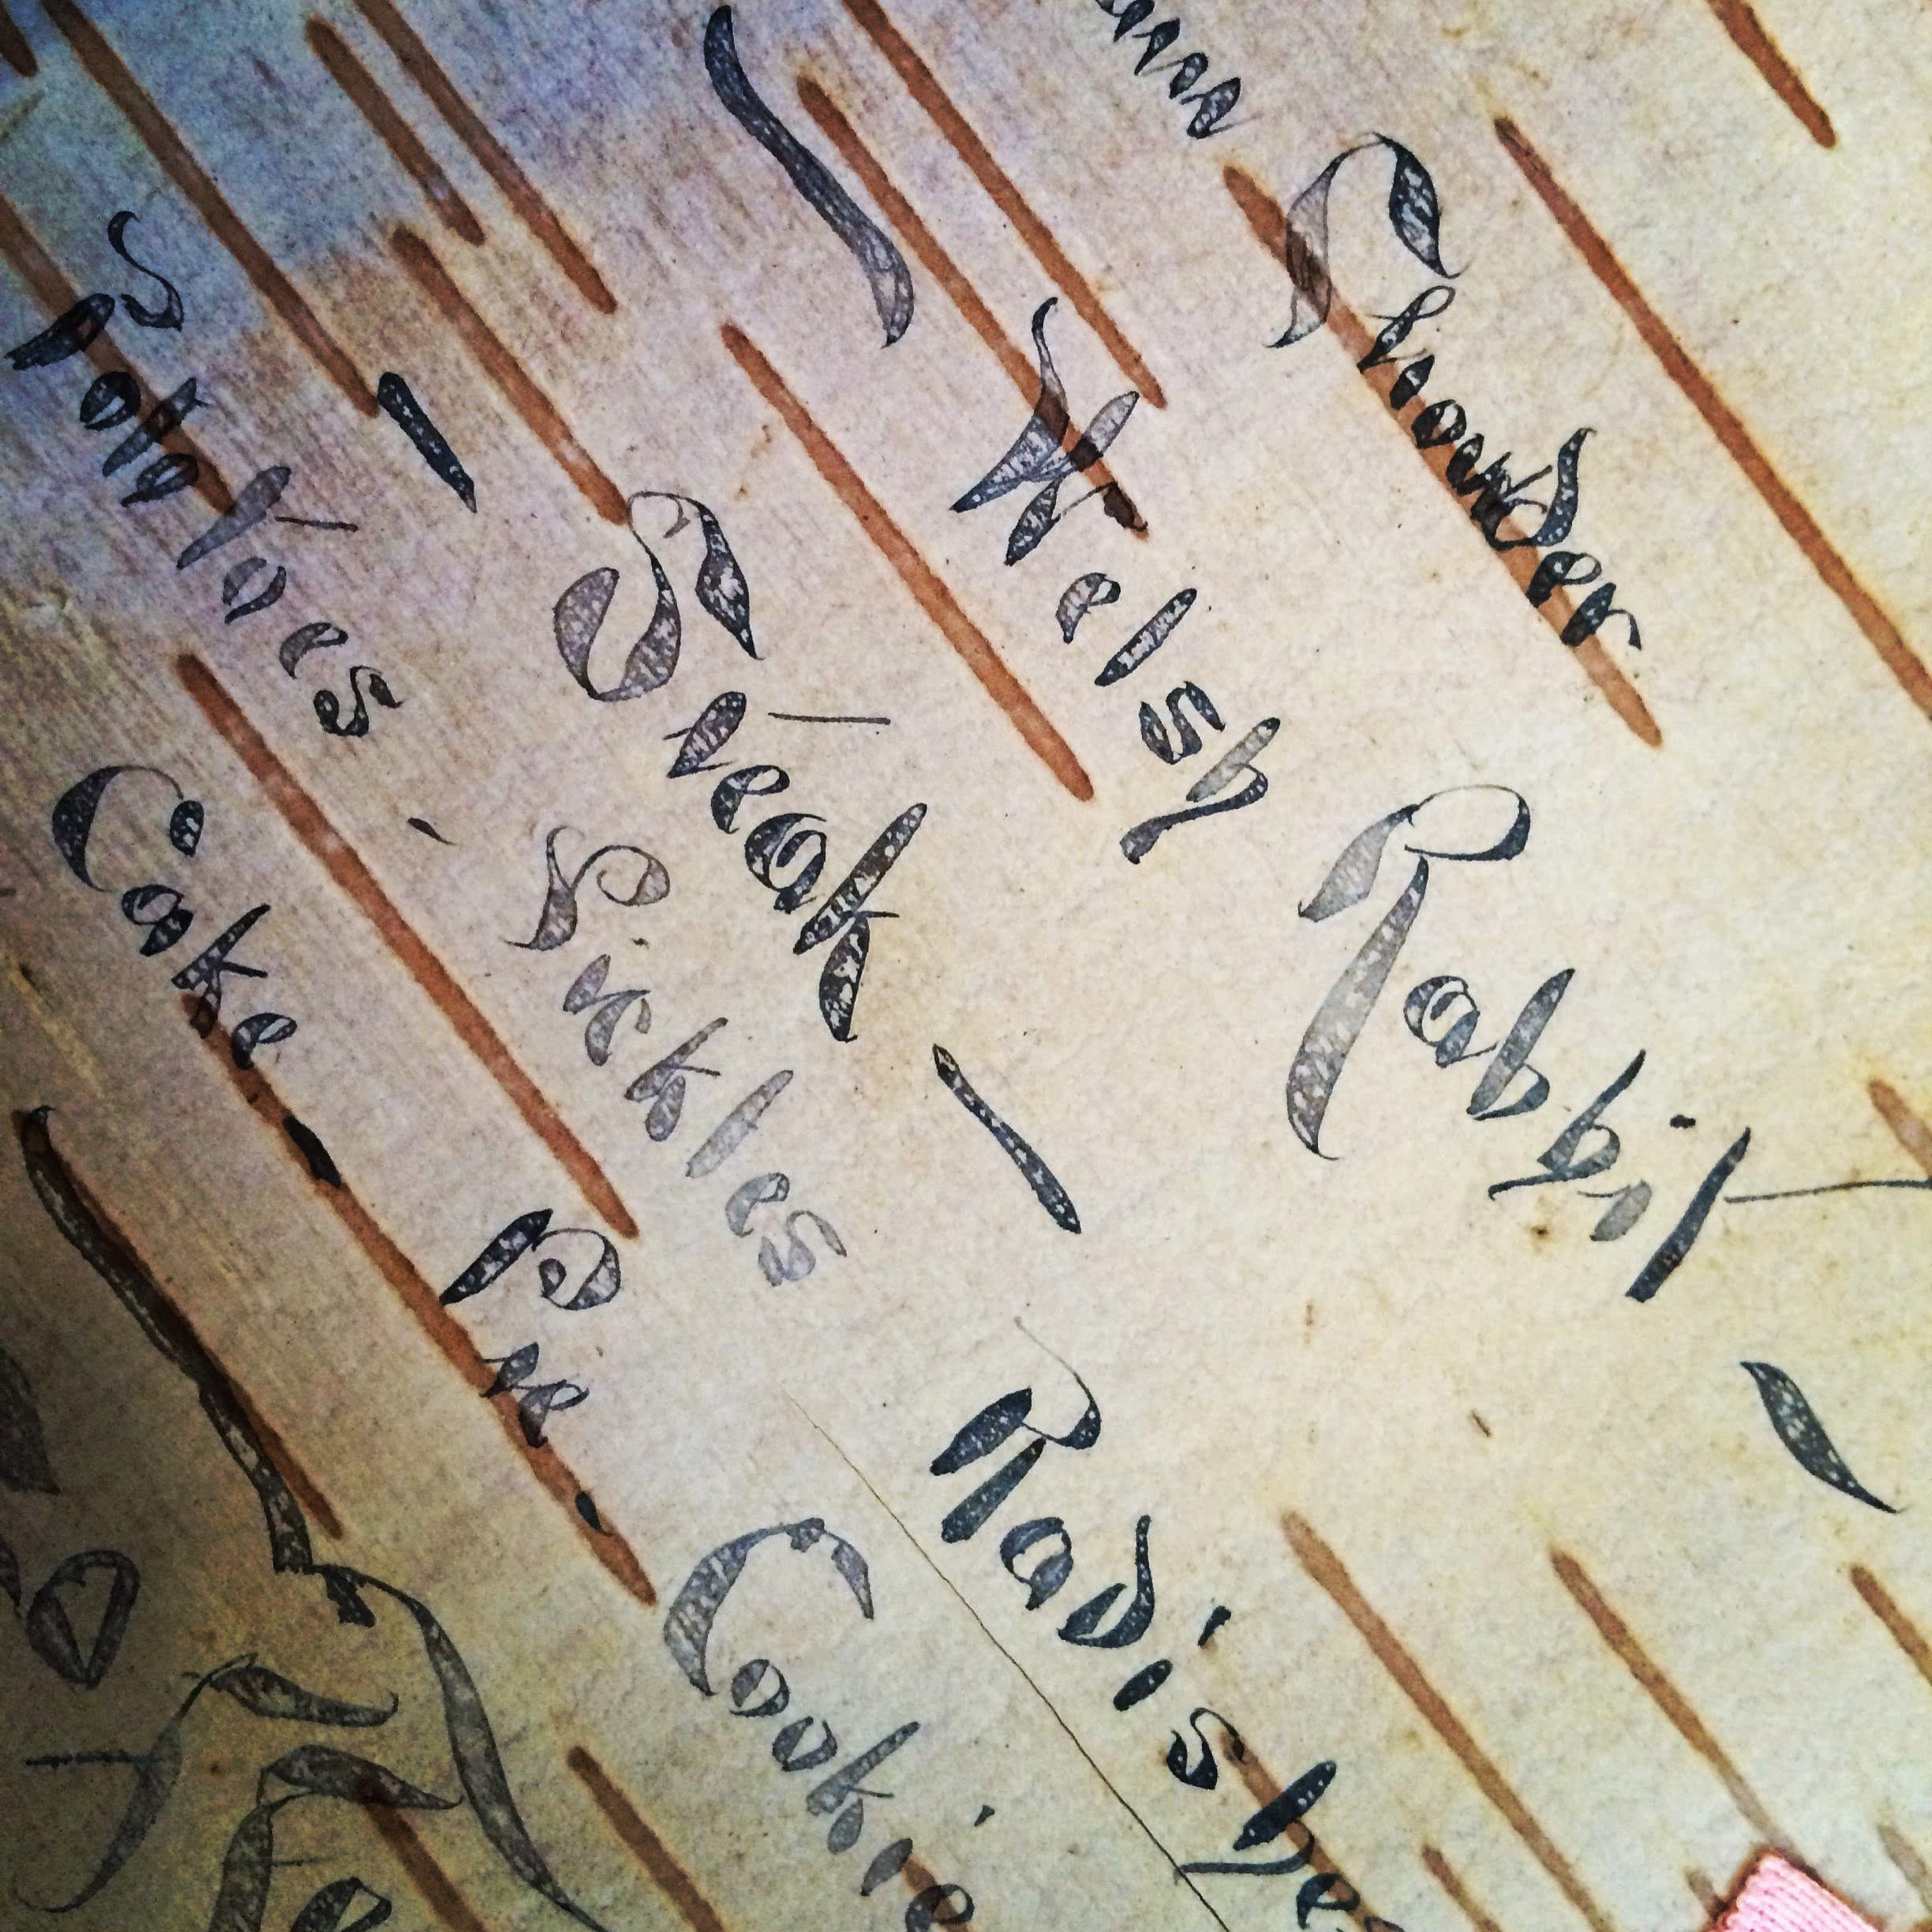 Chowder
~ Welsh Rabbit ~
- Steak -
Potatoes Pickles Radishes
Cake Pie Cookie